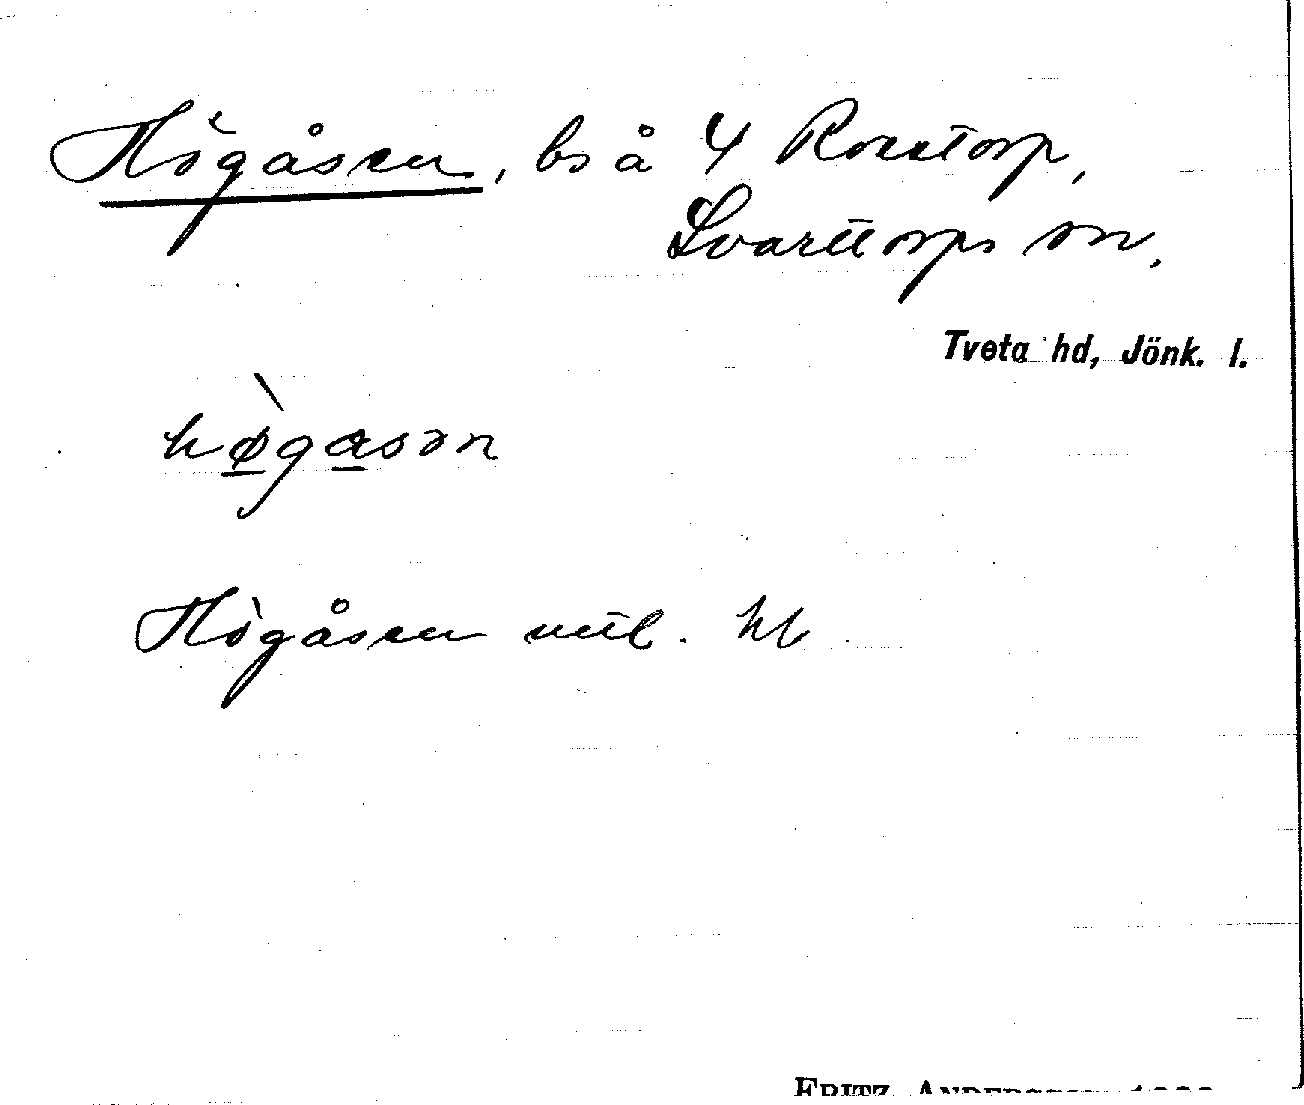 Högåsen, bs å 4 Rosstorp,
Svarttorps sn,
Tveta hd, Jönk. l.
hø̀gasən
Högåsen
FRITZ